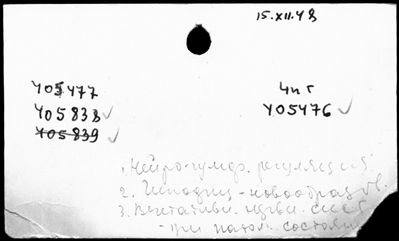 15.XII.48
405477
405838 ✓
405839 ✓
4пг
405476 ✓
1. Нейро-гумор. регуляция
2. новообраз
3. Вегетативн. нервн. сист
- при патол. состояни